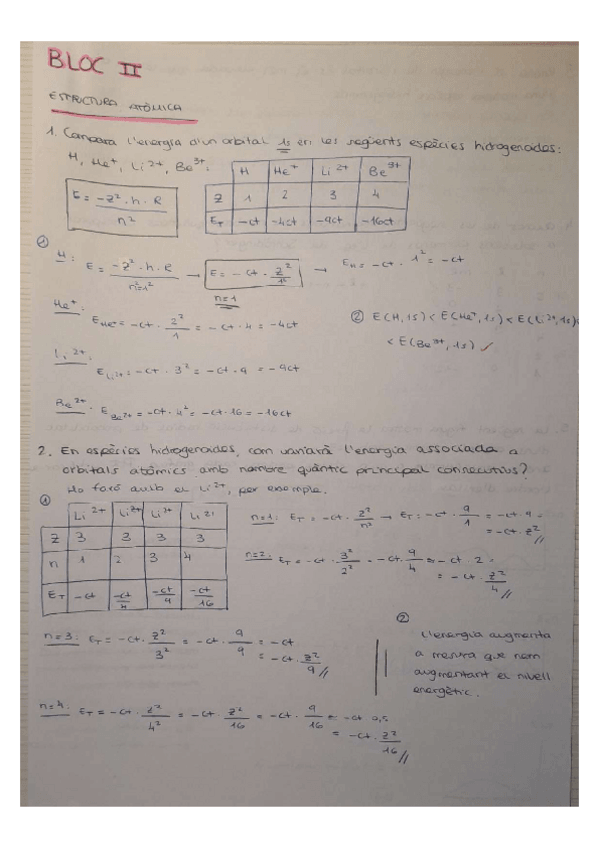 BLOC II
ESTRUCTURA ATÒMICA
1. Compara l'energia d'un orbital 1s en les següents espècies hidrogenades:
H, He+, Li2+, Be3+:
H He+ Li2+ Be3+
Z 1 2 3 4
ET -ct -4ct -9ct -16ct
E = -Z² · h · R / n²
① H:
E = -Z² · h · R / n²=1² → E = -ct · Z²/1² → EH = -ct · 1² = -ct
n=1
He+:
EHe+ = -ct · Z²/1 = -ct · 4 = -4ct
② E(H,1s) < E(He+,1s) < E(Li2+,1s) <
< E(Be3+,1s) ✓
Li2+:
ELi2+ = -ct · 3² = -ct · 9 = -9ct
Be3+: EBe3+ = -ct · 4² = -ct · 16 = -16ct
2. En espècies hidrogenades, com variarà l'energia associada a
orbitals atòmics amb nombre quàntic principal consecutius?
Ho faré amb el Li2+, per exemple.
①
Li2+ Li2+ Li2+ Li2+
Z 3 3 3 3
n 1 2 3 4
ET -ct -ct/4 -ct/9 -ct/16
n=1: ET = -ct · Z²/n² → ET = -ct · 9/1 = -ct · 9 =
= -ct · Z² //
n=2: ET = -ct · 3²/2² = -ct · 9/4 = -ct · 2 =
= -ct · Z²/4 //
n=3: ET = -ct · Z²/3² = -ct · 9/9 = -ct
= -ct · Z²/9 //
② L'energia augmenta
a mesura que nem
augmentant el nivell
energètic.
n=4: ET = -ct · Z²/4² = -ct · Z²/16 = -ct · 9/16 = -ct 0,5
= -ct · Z²/16 //